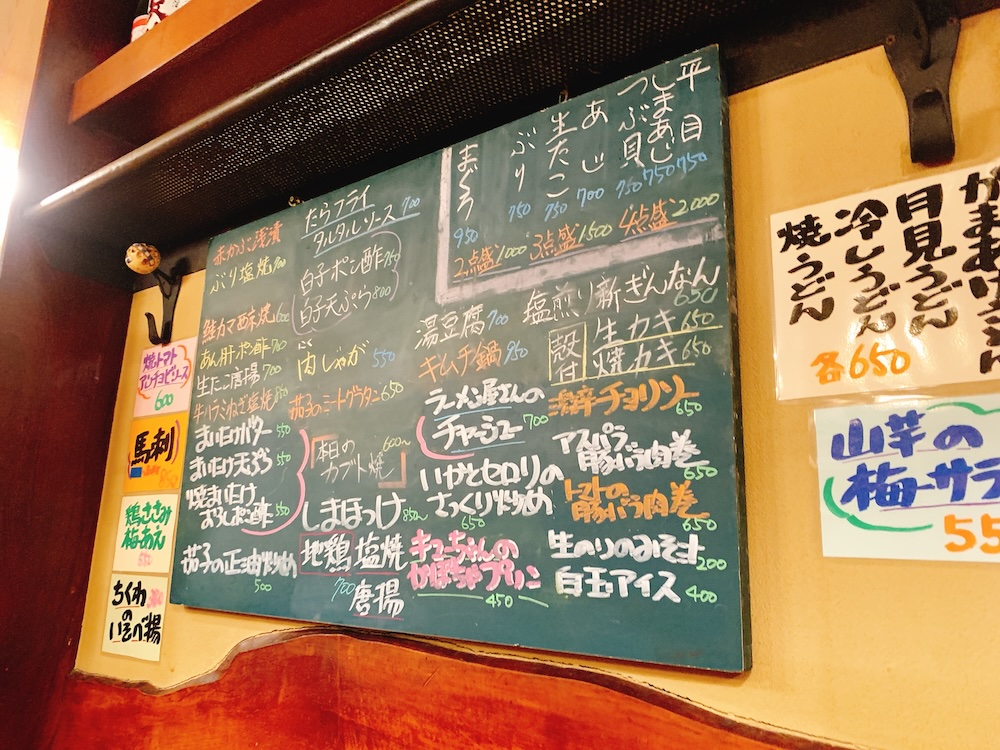 平目 750
しまあじ 750
つぶ貝 750
あじ 700
生たこ 750
ぶり 750
まぐろ 950
2点盛 1000
3点盛 1500
4点盛 2000
たらフライ
タルタルソース 700
白子ポン酢 750
白子天ぷら 800
肉じゃが 550
茄子のミートグラタン 650
本日の
カブト焼
600～
しまほっけ 850～
地鶏 塩焼
700 唐揚
赤かぶ浅漬
ぶり塩焼 700
鮭カマ西京焼 600
あん肝ポン酢 700
生たこ唐揚 700
牛ハラミねぎ塩焼
まいたけバター 550
まいたけ天ぷら 550
焼まいたけ
おろしポン酢 550
茄子の正油炒め
500
塩煎り新ぎんなん
650
湯豆腐 700
キムチ鍋 950
殻付
生カキ 650
焼カキ 650
ラーメン屋さんの
チャーシュー 700
いかとセロリの
さっくり炒め
650
キューちゃんの
かぼちゃプリン
450
激辛チョリソー
650
アスパラ
豚バラ肉巻
650
トマトの
豚バラ肉巻
650
生のりのみそ汁 200
白玉アイス 400
焼トマト
アンチョビソース
600
馬刺
850
鶏ささみ
梅あえ
550
ちくわ
の
いそべ揚
月見うどん
冷しうどん
焼うどん
各650
山芋の
梅サラ
55